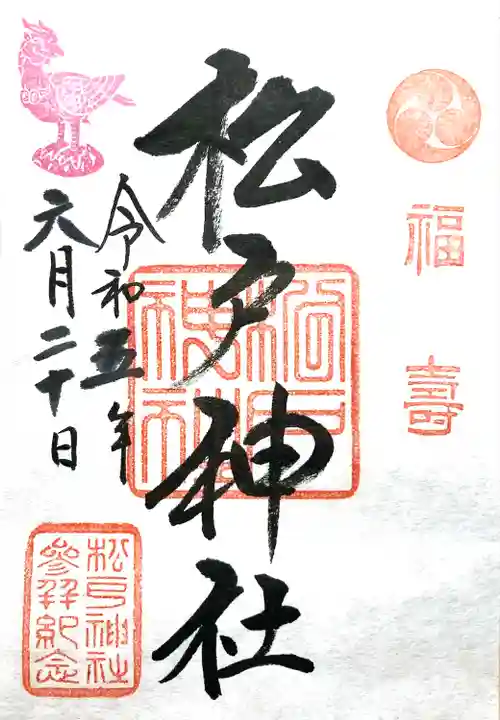 福壽
松戸神社
松戸神社
令和五年
六月二十日
松戸神社
參拜紀念